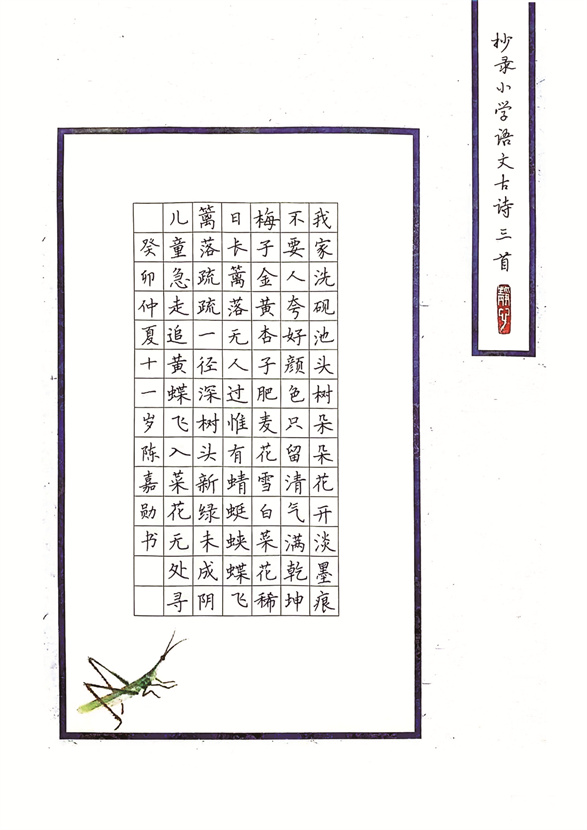 抄录小学语文古诗三首
我家洗砚池头树朵朵花开淡墨痕
不要人夸好颜色只留清气满乾坤
梅子金黄杏子肥麦花雪白菜花稀
日长篱落无人过惟有蜻蜓蛱蝶飞
篱落疏疏一径深树头新绿未成阴
儿童急走追黄蝶飞入菜花无处寻
癸卯仲夏十一岁陈嘉勋书